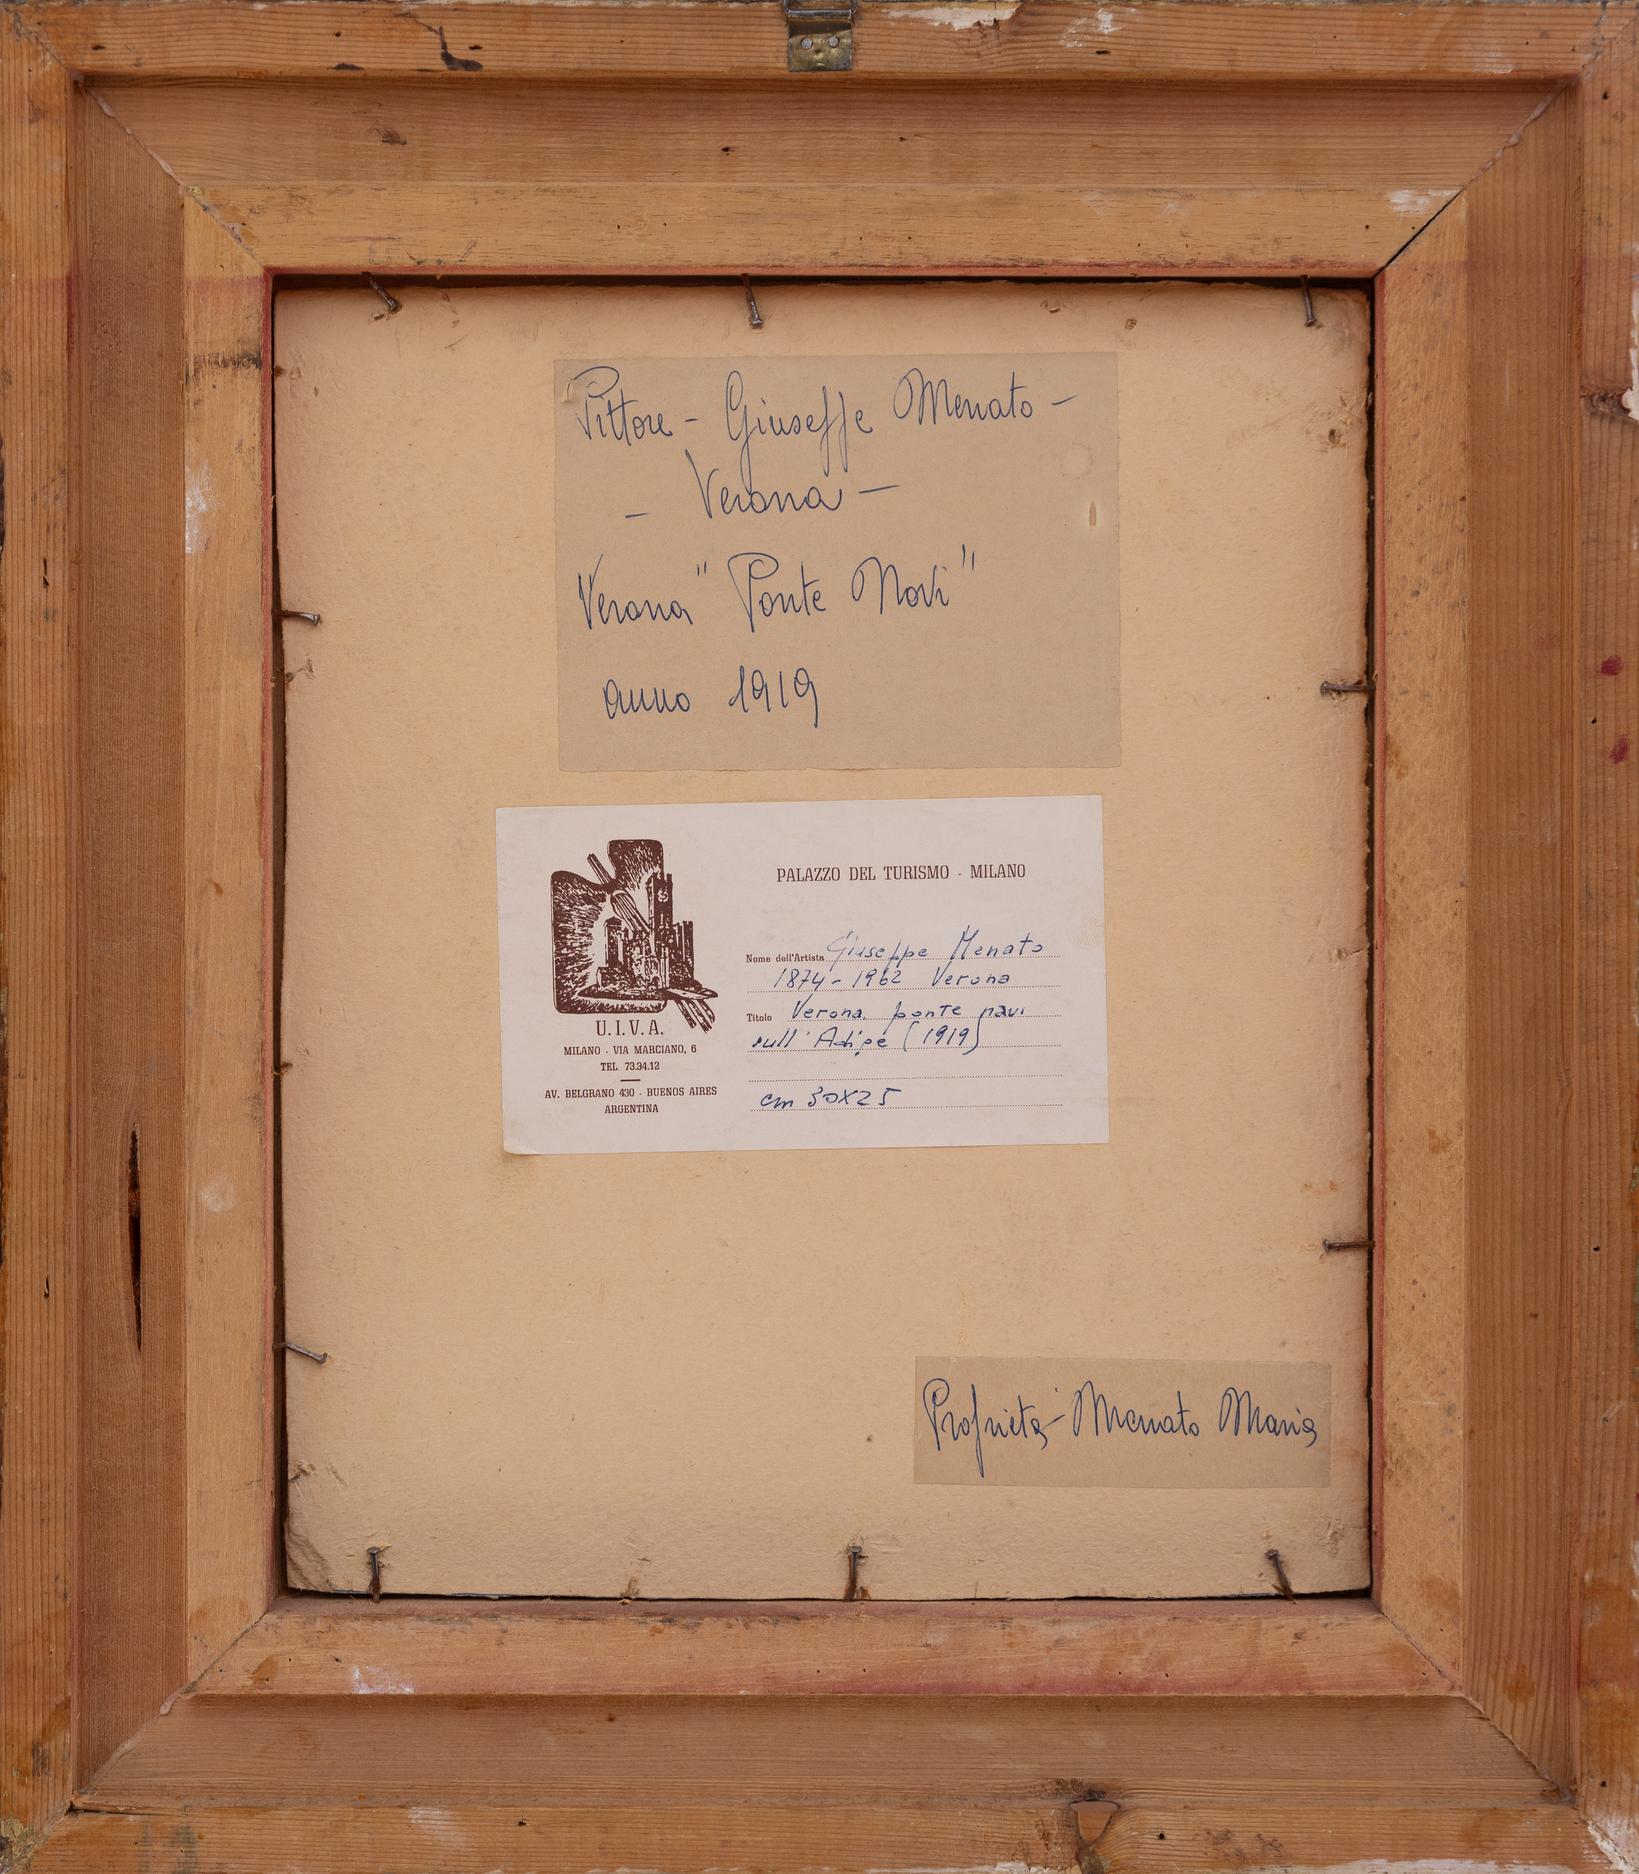 Pittore - Giuseppe Menato -
- Verona -
Verona "Ponte Novi"
anno 1919
PALAZZO DEL TURISMO - MILANO
Nome dell'Artista Giuseppe Menato
1874 - 1962 Verona
Titolo Verona. ponte navi
sull'Adige (1919)
cm 30X25
U.I.V.A.
MILANO - VIA MARCIANO, 6
TEL. 73.34.12
AV. BELGRANO 430 - BUENOS AIRES
ARGENTINA
Proprietà - Menato Maria